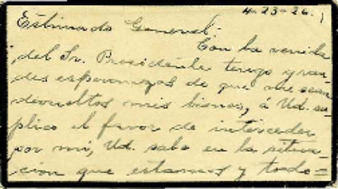 4-23-26.
Estimado General:
Con la venida
del Sr. Presidente tengo gran-
des esperanzas de que me sean
devueltos mis bienes, á Ud. su-
plico el favor de interceder
por mi, Ud. sabe en la situa-
cion que estamos y todo=